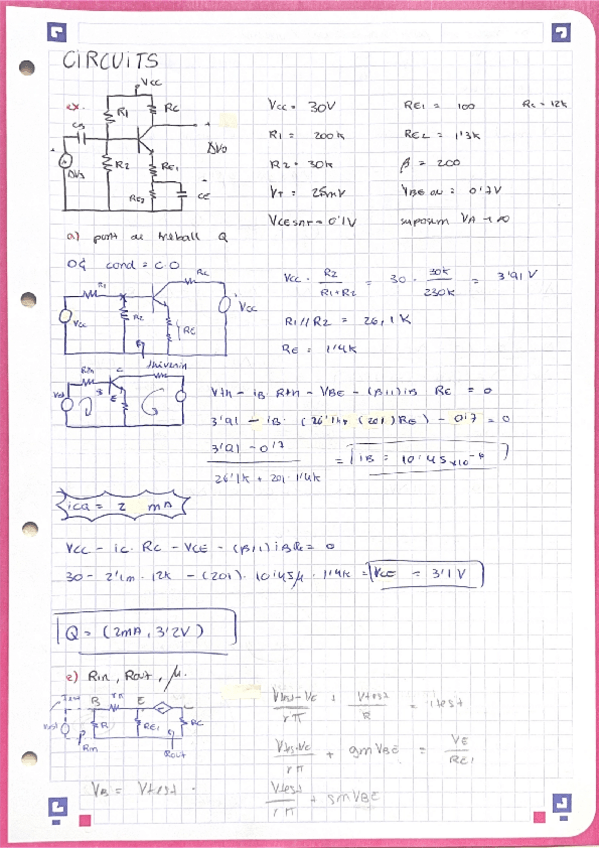 CIRCUITS
ex.
Vcc
R1
Rc
CB
R2
RE1
ΔVo
ΔVs
RE2
CE
Vcc = 30V
RE1 = 100
Rc = 12k
R1 = 200k
RE2 = 1'3k
R2 = 30k
β = 200
VT = 25mV
VBE on = 0'7V
VCEsat = 0'1V
suposem VA → ∞
a) punt de treball Q
DC cond = C.O.
R1
Rc
Vcc
R2
RE
Vcc
Vcc · R2 / R1+R2 = 30 · 30k / 230k = 3'91 V
R1//R2 = 26,1K
RE = 1'4k
thévenin
Rth
C
B
E
Vth
Vth - iB Rth - VBE - (β+1) iB RE = 0
3'91 - iB · (26'1k + (201) RE) - 0'7 = 0
3'91 - 0'7
26'1k + 201 · 1'4k
= iB = 10'45 x10^-6
iCQ = 2 mA
Vcc - ic · Rc - VCE - (β+1) iB RE = 0
30 - 2'1m · 12k - (201) · 10'45μ · 1'4k = VCE = 3'1 V
Q = (2mA, 3'2V)
e) Rin, Rout, μ.
B
rπ
E
C
R
RE1
Rc
Rin
Rout
Vtest-VE / rπ + Vtest / R = itest
Vtest-VE / rπ + gm VBE = VE / RE1
VB = Vtest
Vtest / rπ + gm VBE